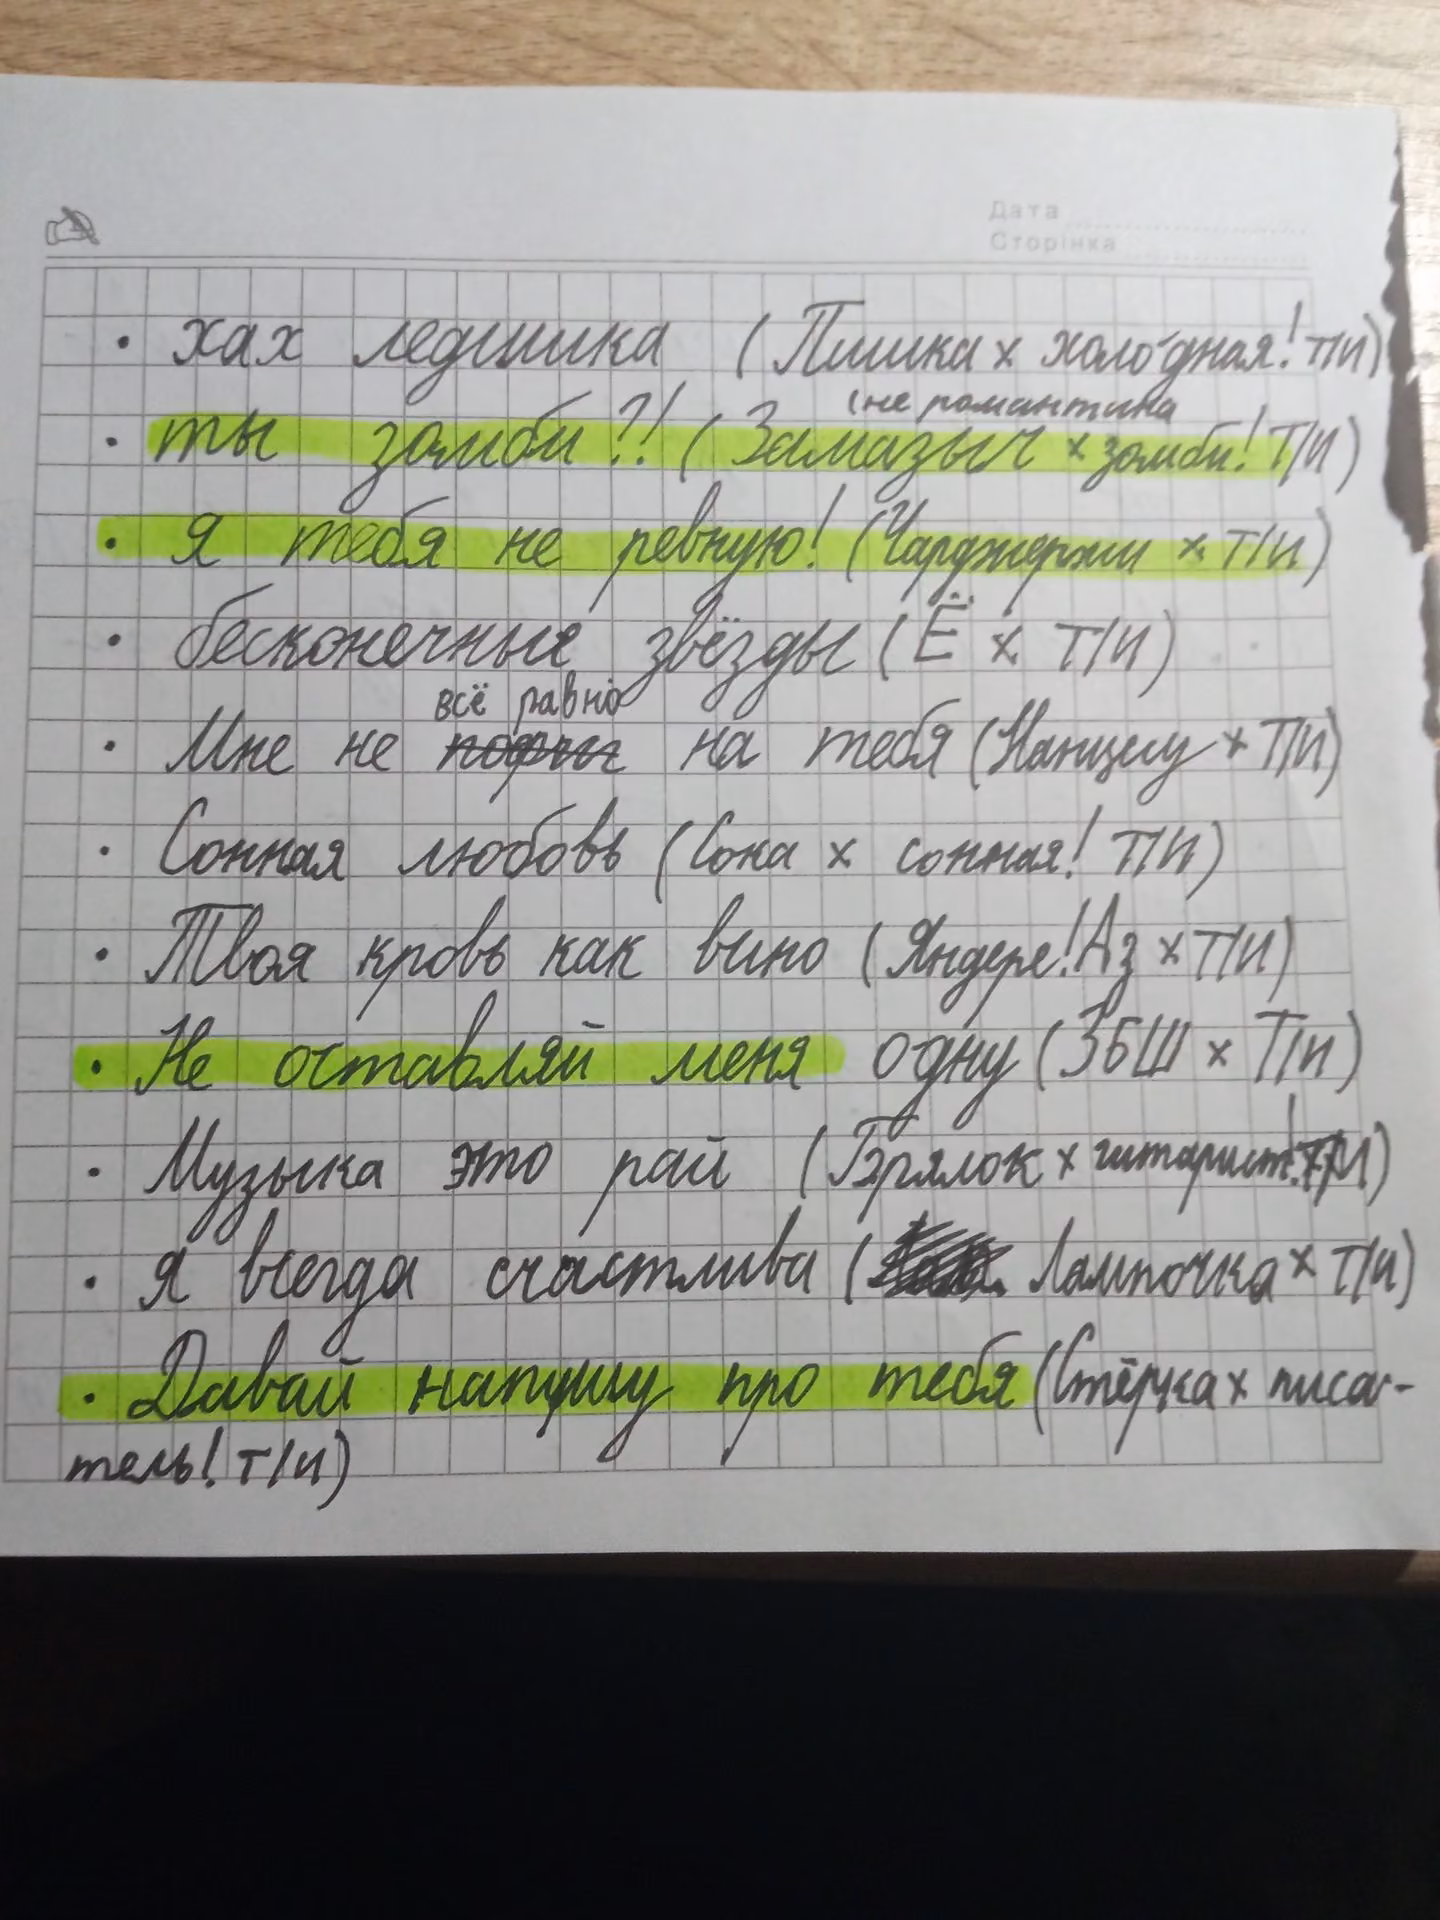 Дата
Сторінка
· хах ледишка (Пишка х холодная! Т/И)
(не романтика
· ты зомби?! (Замазыч х зомби! Т/И)
· Я тебя не ревную! (Чарджержи х Т/И)
· бесконечные звёзды (Ё х Т/И)
всё равно
· Мне не на тебя (Канцелу х Т/И)
· Сонная любовь (Сока х сонная! Т/И)
· Твоя кровь как вино (Яндере! Аз х Т/И)
· Не оставляй меня одну (ЗБШ х Т/И)
· Музыка это рай (Брялок х гитарист! Т/И)
· Я всегда счастлива (Лампочка х Т/И)
· Давай напишу про тебя (Стёрка х писа-
тель! Т/И)